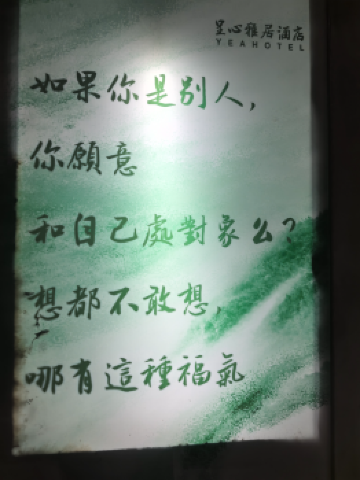 昱心雅居酒店
YEAHOTEL
如果你是别人,
你願意
和自己處對象么?
想都不敢想,
哪有這種福氣